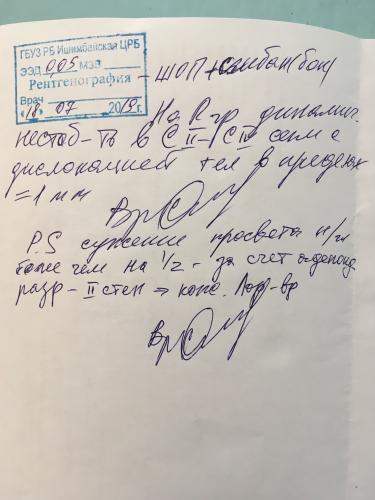 ГБУЗ РБ Ишимбайская ЦРБ
ЭЭД 0,05 мзв
Рентгенография
Врач
"18" 07 2019г.
- ШОП +
На R-гр. динамич.
нестаб-ть в C II - C IV сегм с
дислокацией тел в пределах
= 1 мм
Вр
P.S сужение просвета н/гл
более чем на 1/2 - за счет аденоид
разр - II степ => конс. Лор-вр
Вр